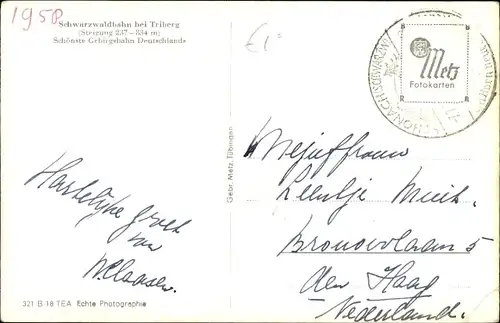 1958
Schwarzwaldbahn bei Triberg
(Steigung 237-834 m)
Schönste Gebirgsbahn Deutschlands
€1
Metz
Fotokarten
SCHONACH (SCHWARZW)
Gebr. Metz, Tübingen
Hartelijke groet
van
W. Claassen.
Mejuffrouw
Leentje
Bronovolaan 5
den Haag
Nederland.
321 B 18 TEA Echte Photographie